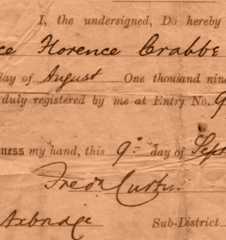 I, the undersigned, Do hereby
ce Florence Crabbe
day of August One thousand nin
duly registered by me at Entry No. 9
ness my hand, this 9th day of Sept
Fredk Curtis
Axbridge Sub-District